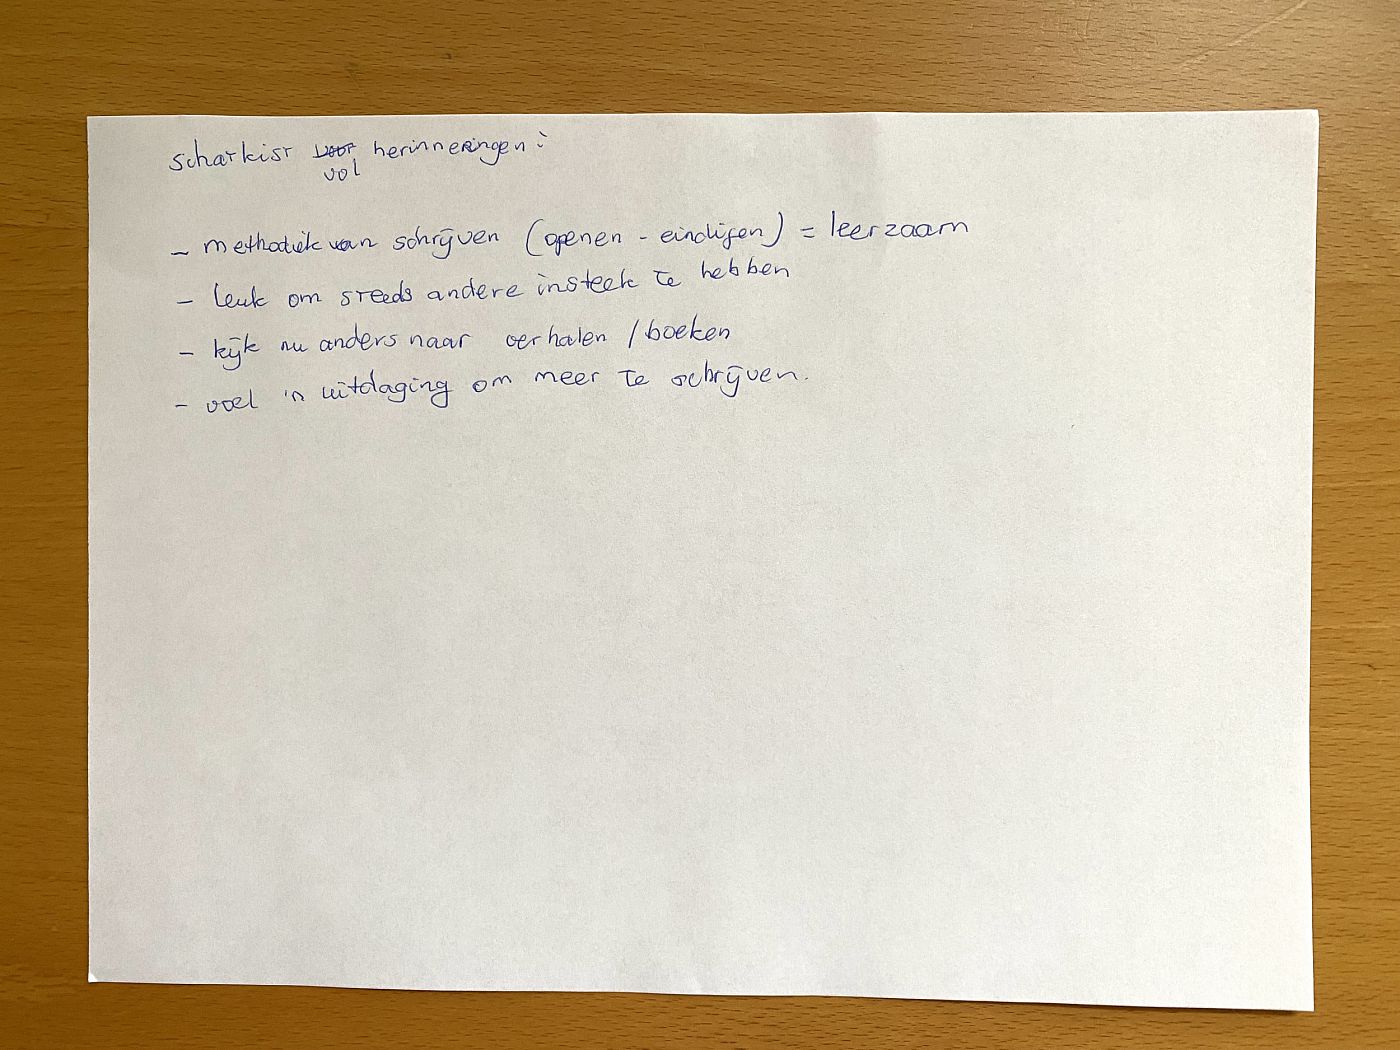 schatkist voor herinneringen:
vol
- methodiek van schrijven (openen - eindigen) = leerzaam
- leuk om steeds andere insteek te hebben
- kijk nu anders naar verhalen / boeken
- voel 'n uitdaging om meer te schrijven.